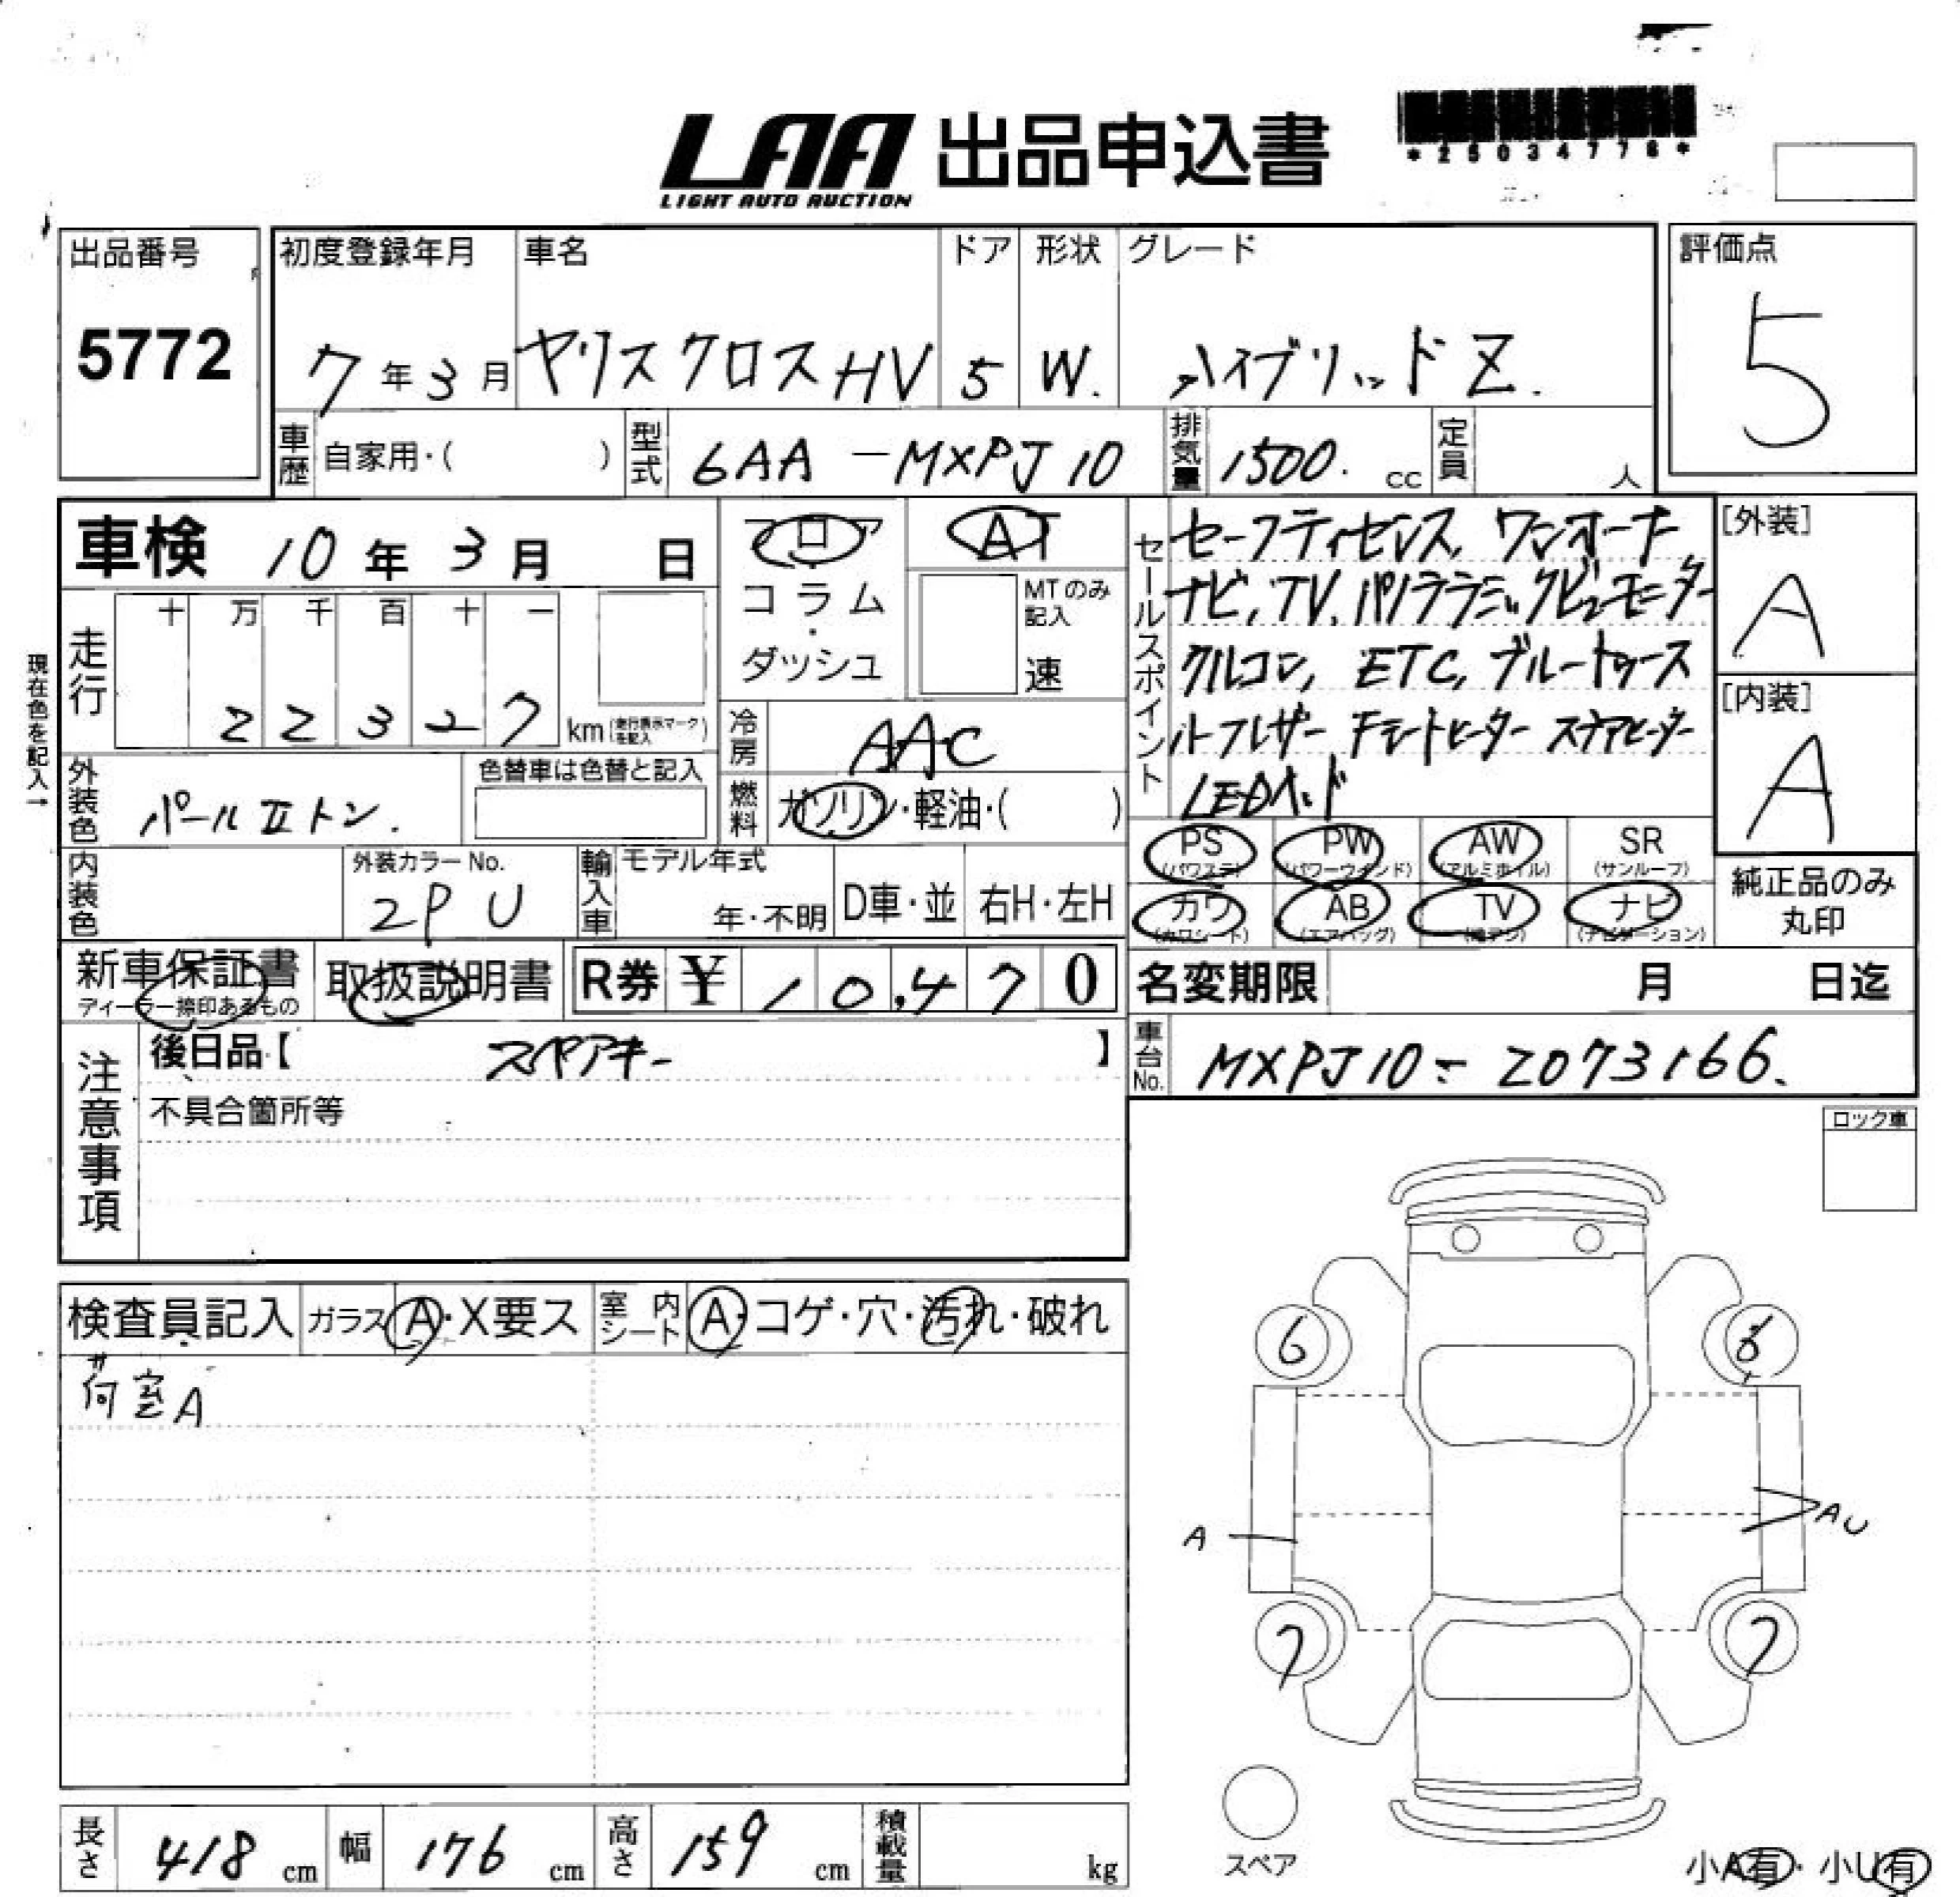 LAA 出品申込書
LIGHT AUTO AUCTION
*25034778*
出品番号
5772
初度登録年月
7年3月
車名
ヤリスクロスHV
ドア
5
形状
W.
グレード
ハイブリッドZ.
評価点
5
車歴 自家用・( )
型式 6AA-MXPJ10
排気量 1500. cc
定員 人
車検 10年3月 日
フロア
コラム
・
ダッシュ
AT
MTのみ記入
速
セールスポイント
セーフティセンス, ワンオーナー
ナビ, TV, パノラミックビューモニター
クルコン, ETC, ブルートゥース
ハーフレザー Fシートヒーター ステアヒーター
LEDヘッド
[外装]
A
[内装]
A
現在色を記入→
走行
十 万 千 百 十 一
2 2 3 2 7 km (走行表示マークを記入)
冷房 AAC
燃料 ガソリン・軽油・( )
外装色 パールIIトン.
色替車は色替と記入
内装色
外装カラーNo.
2PU
輸入車
モデル年式
年・不明
D車・並
右H・左H
PS (パワステ)
PW (パワーウインド)
AW (アルミホイル)
SR (サンルーフ)
カワ (カワシート)
AB (エアバッグ)
TV
ナビ (ナビゲーション)
純正品のみ
丸印
新車保証書
ディーラー捺印あるもの
取扱説明書
R券 ¥ 10,470
名変期限 月 日迄
車台No. MXPJ10-2073166.
注意事項
後日品【 スペアキー 】
不具合箇所等
ロック車
検査員記入
ガラス A・X要ス
室内シート A・コゲ・穴・汚れ・破れ
室A
6
6
A
AU
7
7
スペア
長さ 418 cm
幅 176 cm
高さ 159 cm
積載量 kg
小A有・小U有